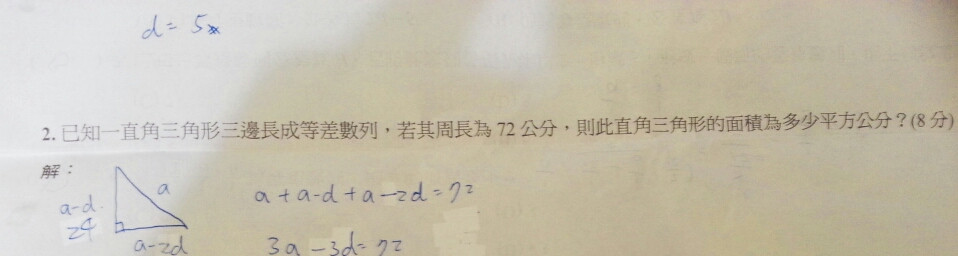 d = 5
2. 已知一直角三角形三邊長成等差數列，若其周長為 72 公分，則此直角三角形的面積為多少平方公分？(8 分)
解：
a
a-d
24
a-2d
a + a-d + a-2d = 72
3a - 3d = 72